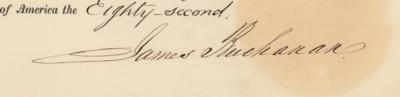 of America the Eighty-second.
James Buchanan